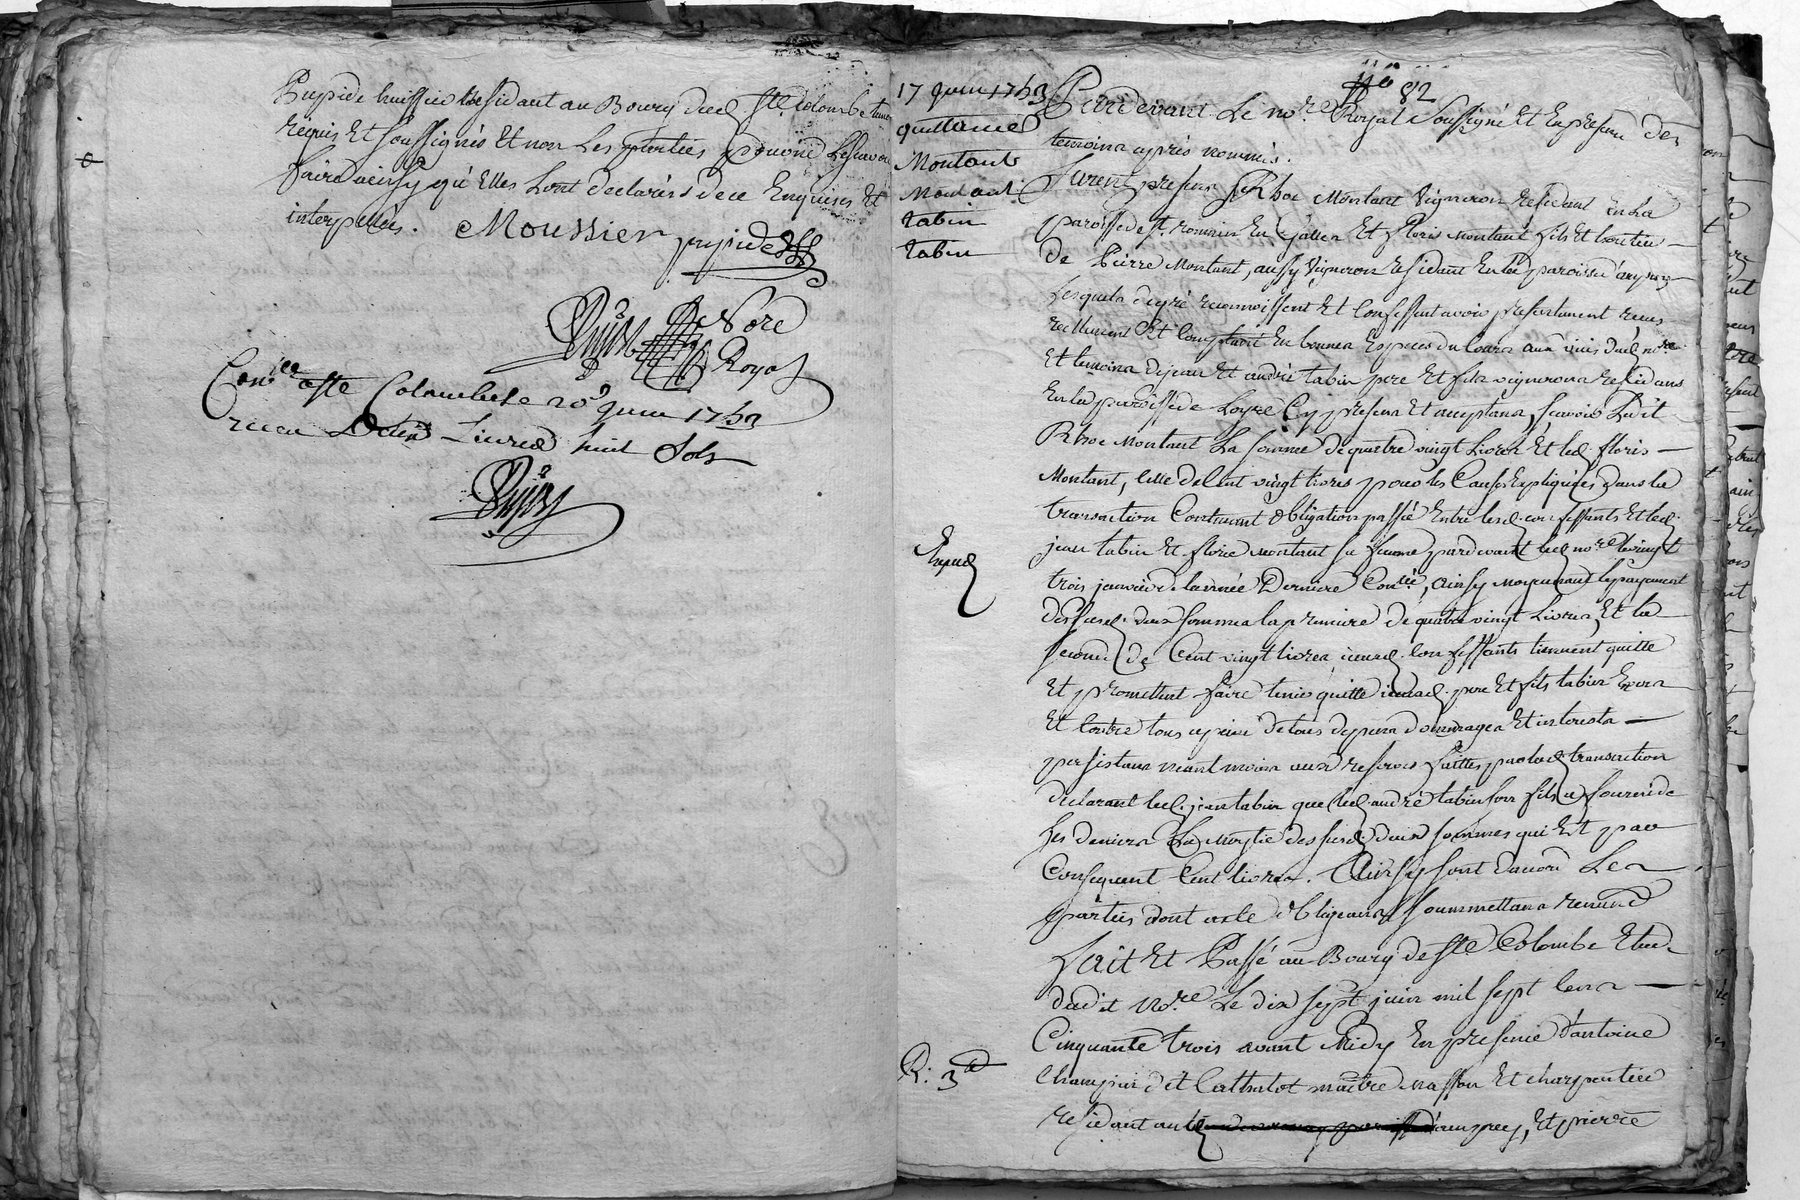 Pupide huissier Residant au Bourg dud. Ste. Colombe temoins
requis Et soussignés Et non Les parties pour ne Lesçavoir
faire ainsy qu'Elles Lont declarées de ce Enquises Et
interpellés. Moussier pupide
Dupuy De Nore
Royal
Con.llé a Ste Colombe le 20e juin 1753
receu Livres huit Sols
Dupuy
82
17 juin 1753
quittance
Montant
Montant
tabin
tabin
Expedé
R. 3d
Pardevant Le no.re Royal Soussigné Et En presence des
temoins après nommés.
Furent presens Sr Roc Montant Vigneron residant En La
paroisse de St romain En Gallier Et floris Montant fils Et heritier
de Pierre Montant, aussy Vigneron residant En la paroisse d'ampuy
Lesquels de gré reconnoissent Et Confessent avoir presentement receu
reellement Et Comptant En bonnes Especes du Cours aux vûës dud. no.re
Et temoins de jean Et andré tabin pere Et fils vignerons residans
En la paroisse de Loyre Cy presens Et acceptans, scavoir Ledit
Roc Montant La somme de quatre vingt Livres Et led. floris
Montant, Celle de Cent vingt livres pour les Causes Expliquées dans la
transaction Contenant obligation passée Entre lesd. confessants Et led.
jean tabin Et florie Montant sa femme pardevant led. no.re le vingt
trois janvier de lannée Derniere Con.llée, ainsy Moyennant le payement
des susd. deux sommes la premiere de quatre vingt Livres Et la
seconde de Cent vingt livres iceux d. Confessants tiennent quitte
Et promettent faire tenir quitte iceux d. pere Et fils tabin Envers
Et Contre tous a peine de tous depens dommages Et interests
persistans neant moins aux reserves faittes par lad. transaction
declarant led. jean tabin que led. andré tabin son fils a fourni de
ses deniers La moytié des susd. deux sommes qui Est par
Consequent Cent livres. Ainsy sont d'accord Les
parties dont acte obligeans soummettans renonce
Fait Et Passé au Bourg de Ste Colombe Etude
dudit No.re Le dix sept juin mil sept Cens
Cinquante trois avant Midy En presence d'antoine
Champin dit Cathalot maitre Masson Et charpentier
residant aud. d'ampuy, Et pierre